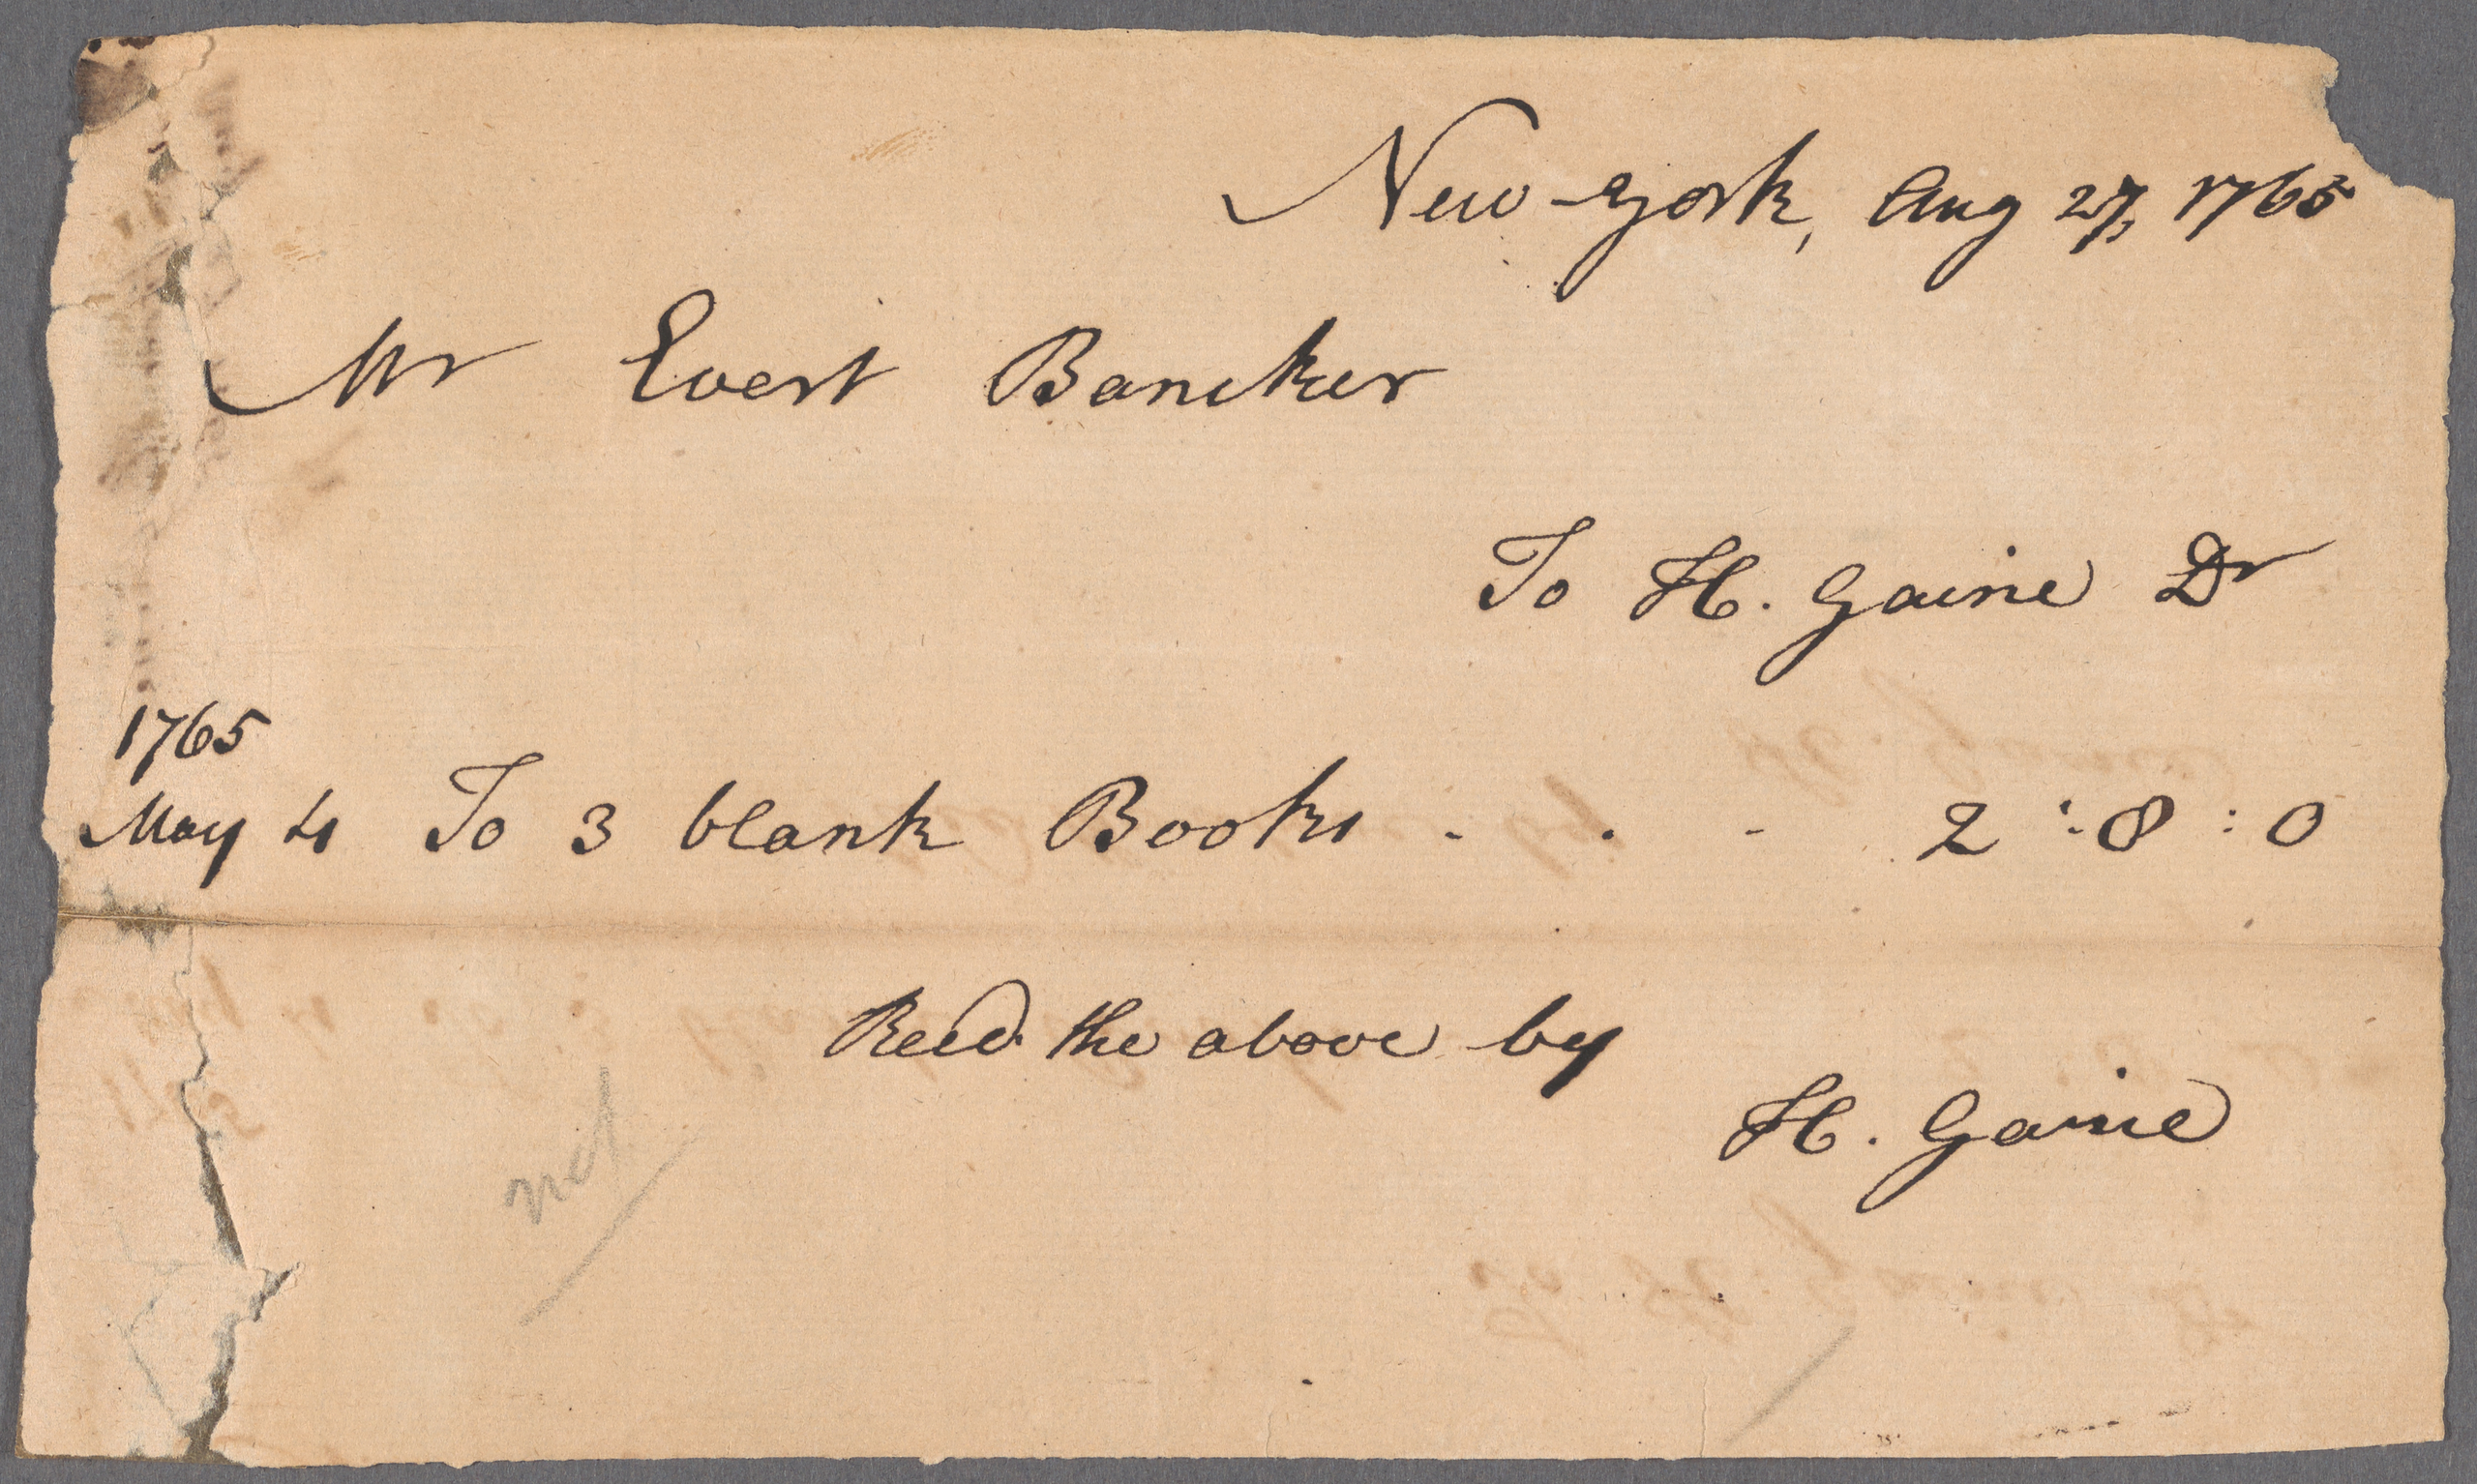 New-York, Aug 27, 1765
Mr Evert Bancker
To H. Gaine Dr
1765
May 4 To 3 blank Books - . - 2 : 8 : 0
Recd. the above by
H. Gaine